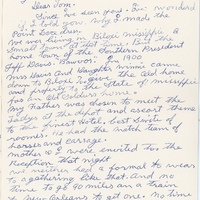 Dear Tom:
Since I've seen you. I've wondered
if I told you why I made the
Point Excelsion.
We were living in Biloxi mississippi a
Small town at that time. But
home Town of the Southern President
Jeff Davis Beauvoir. In 1900
Mrs Davis and Daughter Winnie came
down to Biloxi gave the old home
and property to the State of mississippi
for an old veterans home.
My Father was chosen to meet the
Ladys at the depot and escort them
to the Great Hotel, best Suite of
rooms. He had the match team of
horses and carrage.
Mother & I were envited to the
Reception that night
We neither had a formal to wear
to a gathering like that. And no
time to go 90 miles on a train
to New Orleans to get one. No time